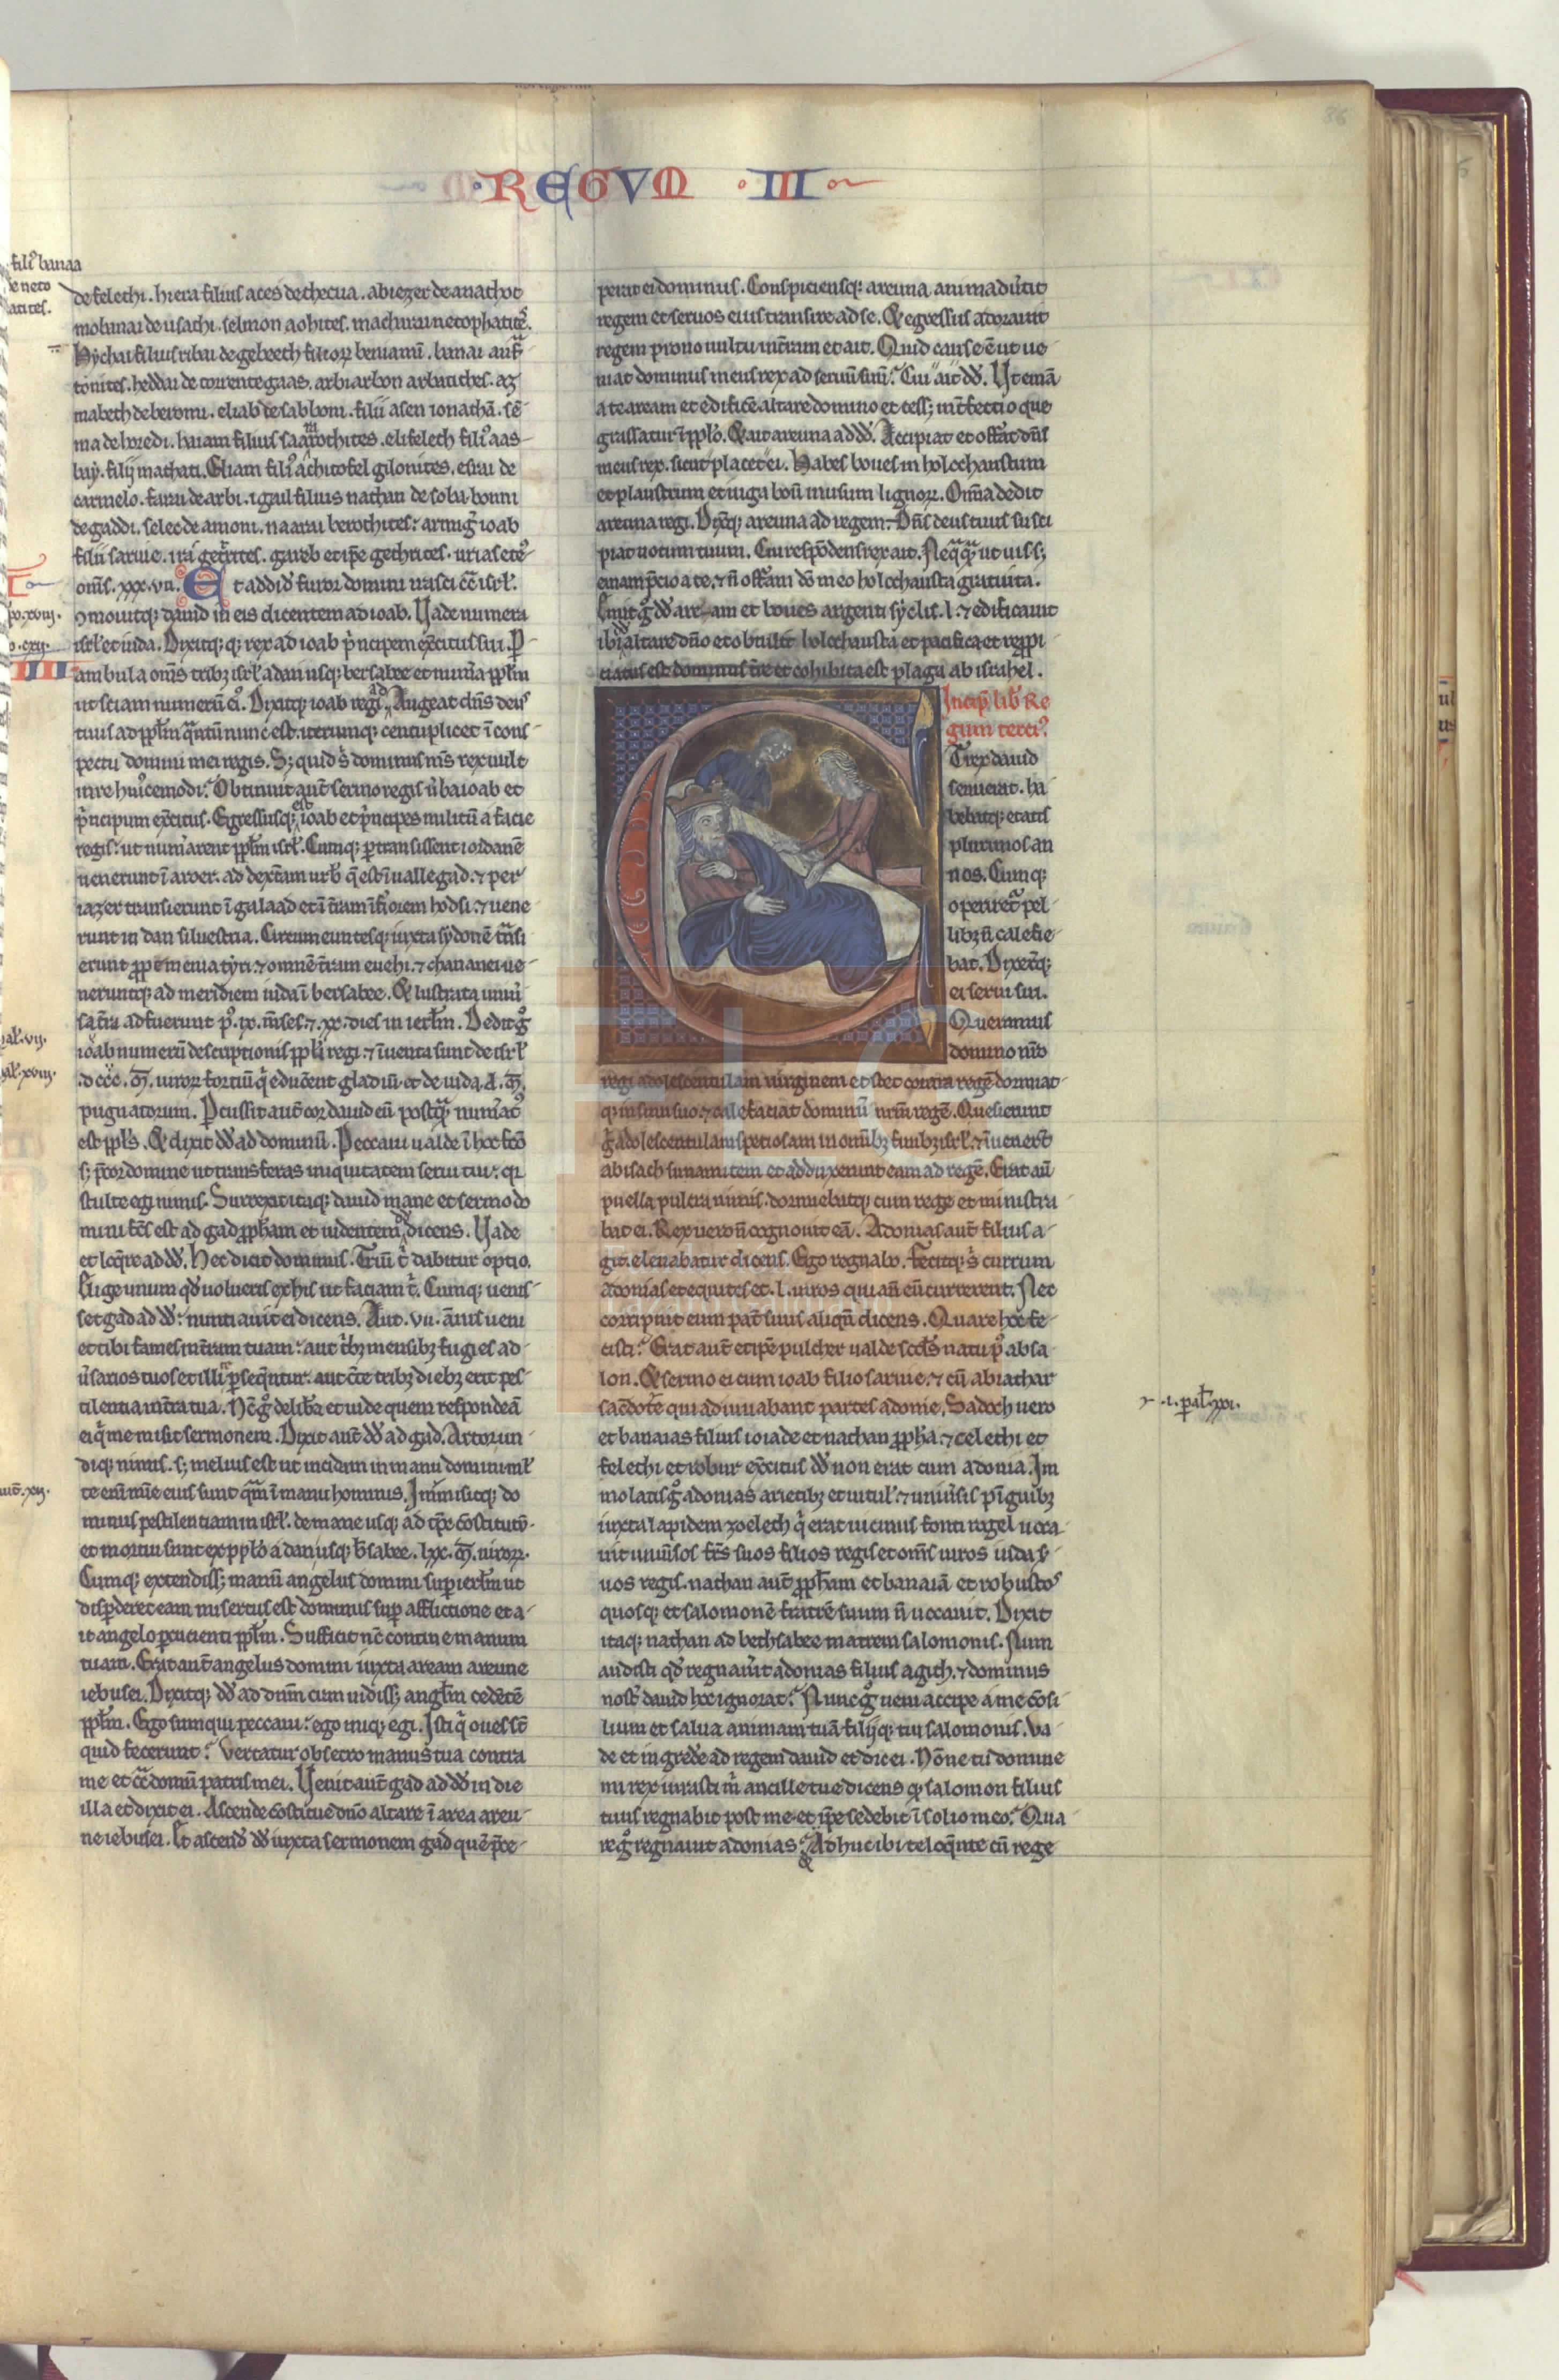 REGVM III
86
filiꝰ banaa
de neto
de felechi. hiera filius aces de thecua. abiezer de anathot
mobunai de usathi. selmon aohites. macharai netophatites.
Hythai filius ribai de gebeeth filiorꝝ beniamī. banai aufra
tonites. heddai de torrente gaas. arbiarbon arbatithes. aȝ
maueth de beromi. eliab de salboni. filii asen ionathā. sē
ma de horedi. haiam filius saarothites. elifelech filiꝰ aas-
bay. filij machati. Eliam filiꝰ achitofel gilonites. esrai de
carmelo. farai de arbi. igaal filius nathan de soba. bonni
de gaddi. selec de amoni. naarai berothites: armig̃ ioab
filii saruie. ira gethrites. gareb et ip̃e gethrites. urias etꝰ
om̄s. xxx.vii. Et addid᷑ furor domini irasci cō isrł.
ꝯmouitq; dauid in eis dicentem ad ioab. Vade numera
isrł et iuda. Dixitq; rex ad ioab p̓ncipem exc̄itus sui. P
ambula om̄s tribꝫ isrł a dan usq; bersabee et num̓a pp̄łm
ut sciam numerū eiꝰ. Dixitq; ioab regi. Augeat dn̄s deꝰ
tuus ad pp̄łm q̄ntū nunc est. iterumq; centuplicet ī cons-
pectu domini mei regis. S; quid s̓ dominus m̄s rex uult
in re huiꝰcemodi? Obtinuit aut̄ sermo regis ūba ioab et
p̓ncipum exc̄itus. Egressusq; ioab et p̓ncipes militū a facie
regis: ut num̓arent pp̄łm isrł. Cumq; ꝑtransissent iordanē
uenerunt ī aroer. ad dext̄am urb᷑ q̄ est ī ualle gad. ⁊ per
iazer transierunt ī galaad et ī t̄ram īf̓iorem hodsi. ⁊ uene-
runt in dan siluestria. Circumeuntesq; iuxta sydonē t̄nsi-
erunt ꝓpe menia tyri. ⁊ omnē t̄ram euehi. ⁊ chananei ue-
neruntq; ad meridiem iuda ī bersabee. Et lustrata uniū
sa t̄ra adfuerunt pꝰ. ix. m̄ses. ⁊. xx. dies in ierłm. Dedit g̊
ioab numerū descriptionis pp̄łi regi. ⁊ īuenta sunt de isrł
dccc. m̄. uirorꝝ fortiū q̓ educ̄ent gladiū. et de iuda. d. m̄.
pugnatorum. Pcussit aut̄ cor dauid eū postq̄ num̓atꝰ
est pp̄łs. Et dixit dd᷑ ad dominū. Peccaui ualde ī hoc fc̄o
s; p̄cor domine ut transferas iniquitatem serui tui: q̓
stulte egi nimis. Surrexit itaq; dauid mane et sermo do
mini fc̄s est ad gad ꝓph̄am et uidentem dicens. Vade
et loq̄re ad dd᷑. Hec dicit dominus. Triū t̓ dabitur optio.
Elige unum qd᷑ uolueris ex his ut faciam t̓. Cumq; uenis-
set gad ad dd᷑: nuntiauit ei dicens. Aut. vii. ānis ueni
et tibi fames in t̄ram tuam: aut t̓bꝫ mensibꝫ fugies ad-
ūsarios tuos et illi ꝑseq̄ntur. aut c̄te tribꝫ diebꝫ erit pes-
tilentia in t̄ra tua. Nc̄ g̊ delib̓a et uide quem respondeā
ei q̓ me misit sermonem. Dixit aut̄ dd᷑ ad gad. Artor un-
diq; nimis. s; melius est ut incidam in manu domini mł
te eni m̄ie eius sunt q̄m ī manu hominis. Immisitq; do
minus pestilentiam in isrł. de mane usq; ad tp̄s cōstitutū.
et mortui sunt ex pp̄ło a dan usq; b̓sabee. lxx. m̄. uirorꝝ.
Cumq; extendiss; manū angelus domini suꝑ ierłm ut
disꝑderet eam misertus est dominus suꝑ afflictione et a-
it angelo ꝑcutienti pp̄łm. Sufficit nc̄ contine manum
tuam. Erat aut̄ angelus domini iuxta aream areune
iebusei. Dixitq; dd᷑ ad dnm̄ cum uidiss; angłm cedētē
pp̄łm. Ego sum qui peccaui: ego iniq; egi. Isti q̓ oues st̄
quid fecerunt? Vertatur obsecro manus tua contra
me et cō domū patris mei. Venit aut̄ gad ad dd᷑ in die
illa et dixit ei. Ascende cōstitue dn̄o altare ī area areu-
ne iebusei. Et ascend᷑ dd᷑ iuxta sermonem gad quē p̄ce-
perat ei dominus. Conspiciensq; areuna animadūtit
regem et seruos eius transire ad se. Et egressus adorauit
regem prono uultu in t̄ram et ait. Quid cause ē ut ue
niat dominus meus rex ad seruū suū? Cui ait dd᷑. Vt emā
a te aream et edificē altare domino et cess; int̓fectio que
grassatur ī pp̄ło. Et ait areuna ad dd᷑. Accipiat et off̓at dn̄s
meus rex. sicut placet ei. Habes boues in holochaustum
et plaustrum et iuga boū in usum lignorꝝ. Om̄ia dedit
areuna regi. Dix̄q; areuna ad regem. Dn̄s deus tuus susci
piat uotum tuum. Cui respōdens rex ait. Neq̄q̄ ut uis s;
emam p̄cio a te. ⁊ n̄ off̓am dō meo holochausta gratuita.
Emit g̊ dd᷑ aream et boues argenti syclis. l. ⁊ edificauit
ibi altare dn̄o et obtulit holochausta et pacifica et reꝓpi-
ciatus est dominus t̄re et cohibita est plaga ab israhel.
Incip̄ lib᷑ Re
gum terciꝰ.
Et rex dauid
senuerat. ha
bebatq; etatis
plurimos an
nos. Cumq;
operiret᷑ pel
libꝫ n̄ calefie-
bat. Dixer̄q;
ei serui sui.
Queramus
domino nr̄o
regi adolescentulam uirginem et stet coram regē dormiat-
q; in sinu suo. ⁊ calefaciat dominū nrm̄ regē. Quesierunt
g̊ adolescentulam speciosam in omībꝫ finibꝫ isrł. ⁊ īuener̄t
abisach sunamitem et adduxerunt eam ad regē. Erat aū
puella pulcra nimis. dormiebatq; cum rege et ministra
bat ei. Rex uero n̄ cognouit eā. Adonias aut̄ filius a-
git. eleuabatur dicens. Ego regnabo. Fecitq; s̓ currum
adonias et equites et. l. uiros qui an̄ eū currerent. Nec
corripuit eum pat̄ suus aliqn̄ dicens. Quare hoc fe-
cisti? Erat aut̄ et ip̄e pulcher ualde sc̄ds natu pꝰ absa-
lon. Et sermo ei cum ioab filio saruie. ⁊ cū abiathar
sac̄dote qui adiuuabant partes adonie. Sadoch uero
et banaias filius ioiade et nathan ꝓph̄a. ⁊ celethi et
felethi et robur exc̄itus dd᷑ non erat cum adonia. Im
molatis g̊ adonias arietibꝫ et uitul̓. ⁊ uniūsis pīguibꝫ
iuxta lapidem zoelech q̓ erat uicinus fonti rogel uoca-
uit uniūsos fr̄s suos filios regis et om̄s uiros iuda s̓-
uos regis. nathan aut̄ ꝓph̄am et banaiā et robustoˢ
quosq; et salomonē fratrē suum n̄ uocauit. Dixit
itaq; nathan ad bethsabee matrem salomonis. Num
audisti qd᷑ regnau̓it adonias filius agith. ⁊ dominus
nost̓ dauid hoc ignorat? Nunc g̊ ueni accipe a me cōsi-
lium et salua animam tuā filijq; tui salomonis. Va-
de et ingred᷑e ad regem dauid et dic ei. Nōne tu domine
mi rex iurasti m̓ ancille tue dicens ꝙ salomon filius
tuus regnabit post me. et ip̄e sedebit ī solio meo? Qua-
re g̊ regnauit adonias? Adhuc ibi te loq̄nte cū rege